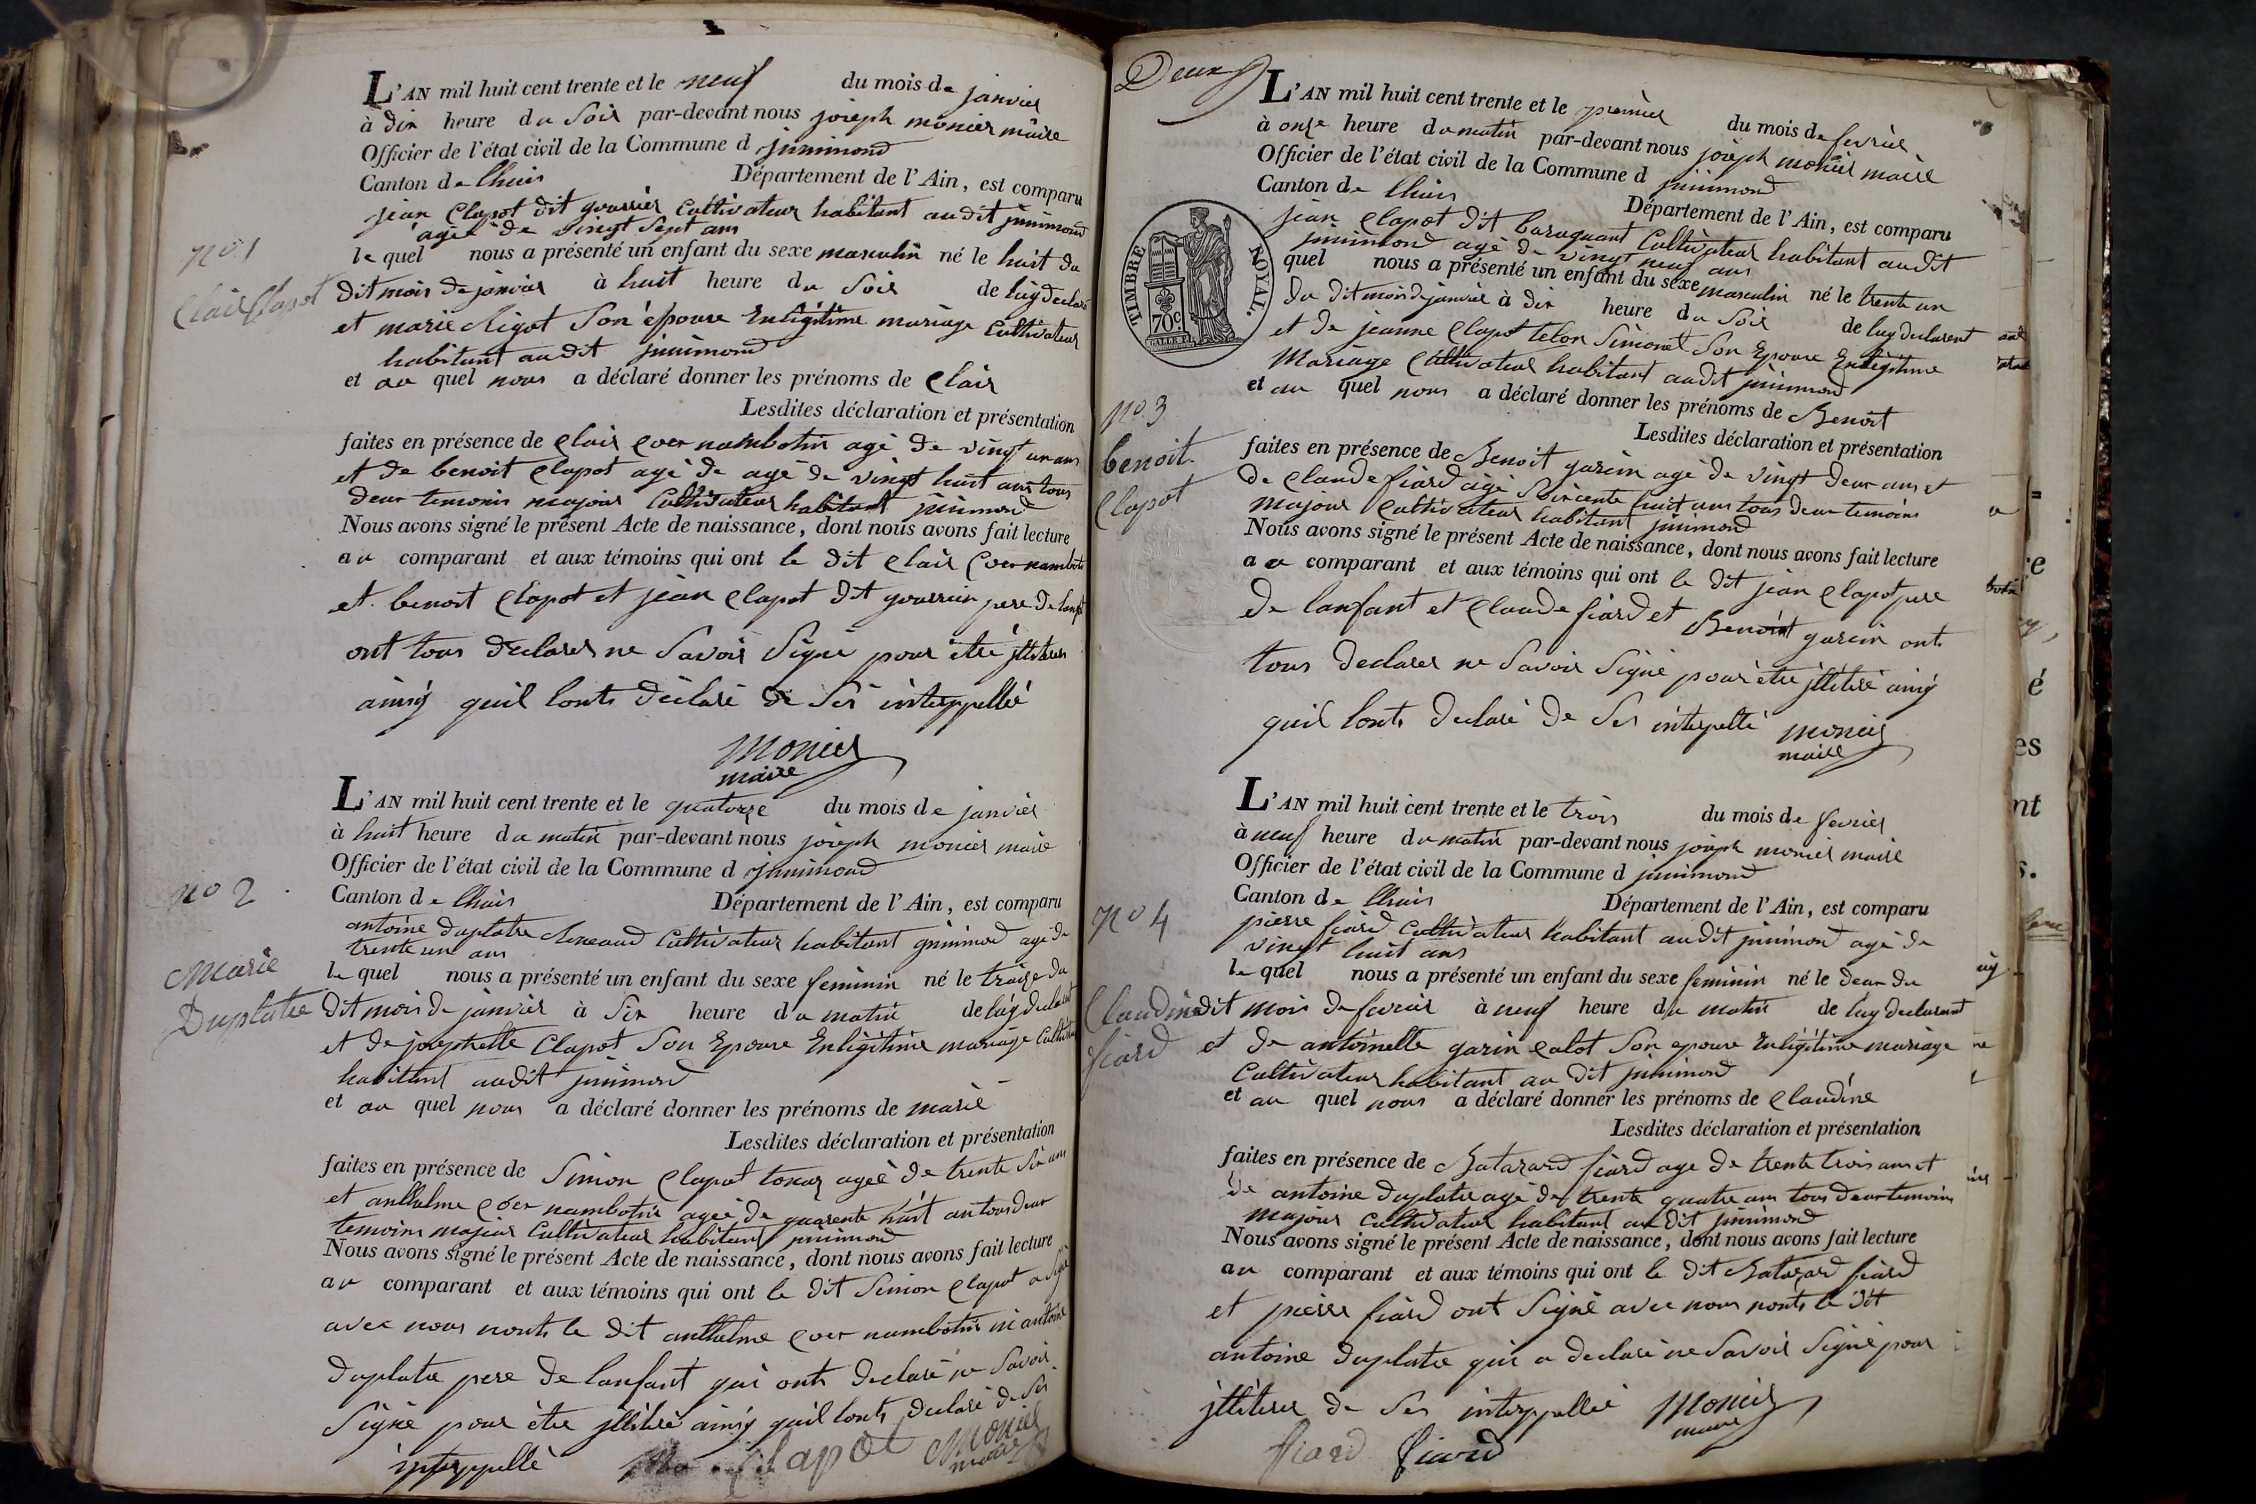 L'AN mil huit cent trente et le neuf du mois de janvier
à dix heure du Soir par-devant nous joseph monier maire
Officier de l'état civil de la Commune d jnnimond
Canton de lhuis Département de l'Ain, est comparu
jean Clapot dit gourrier Cultivateur habitant audit jnnimond
agée de vingt Sept ans
no. 1
le quel nous a présenté un enfant du sexe masculin né le huit du
Clair Clapot
dit mois de janvier à huit heure du Soir de luy declarant
et marie Rigot Son épouse En légitime mariage Cultivateur
habitant audit jnnimond
et au quel nous a déclaré donner les prénoms de Clair
Lesdites déclaration et présentation
faites en présence de Clair Coer nambotin agé de vingt un ans
et de benoit Clapot agé de agé de vingt huit ans tous
deux temonis majeur Cultivateur habitant jnnimond
Nous avons signé le présent Acte de naissance, dont nous avons fait lecture
au comparant et aux témoins qui ont le dit Clair Coer nambotin
et benoit Clapot et jean Clapot dit gourrier pere de lanfant
ont tous declarer ne Savoir Signé pour être jllitrer
ainsy quil lonts déclaré de Ses interppellé
monier
maire
L'AN mil huit cent trente et le quatorze du mois de janvier
à huit heure du matin par-devant nous joseph monier maire
Officier de l'état civil de la Commune d jnnimond
no 2
Canton de lhuis Département de l'Ain, est comparu
antoine duplatre Cultivateur habitant jnnimond agé de
trente un ans
Marie
le quel nous a présenté un enfant du sexe feminin né le treize du
Duplatre
dit mois de janvier à Six heure du matin de luy declarant
et de josephette Clapot Son Epouse En légitime mariage Cultivateur
habittant audit jnnimond
et au quel nous a déclaré donner les prénoms de marie
Lesdites déclaration et présentation
faites en présence de Simon Clapot agée de trente Six ans
et anthelme Coer nambotin agée de quarente huit an tous deux
temoins majeur Cultivateur habitant jnnimond
Nous avons signé le présent Acte de naissance, dont nous avons fait lecture
au comparant et aux témoins qui ont le dit Simon Clapot a Signé
avec nous nonts le dit anthelme Coer nambotin ni antoine
duplatre pere de lanfant qui onts declaré ne Savoir
Signé pour être jllitré ainsy quil lonts declaré de Ses
interppellé Clapot Monier
maire
Deux
L'AN mil huit cent trente et le premier du mois de fevrier
à onze heure du matin par-devant nous joseph monier maire
Officier de l'état civil de la Commune d jnnimond
Canton de lhuis Département de l'Ain, est comparu
jean Clapot dit baraquant Cultivateur habitant audit
jnnimond agé de vingt neuf ans
TIMBRE ROYAL.
70c.
quel nous a présenté un enfant du sexe masculin né le trente un
du dit mois de janvier à dix heure du Soir de luy declarent
et de jeanne Clapot Simonet Son Epouse En légitime
Mariage Cultivateur habitant audit jnnimond
et au quel nous a déclaré donner les prénoms de Benoit
no. 3
benoit
Clapot
Lesdites déclaration et présentation
faites en présence de Benoit garin agé de vingt deux ans et
de Claude fiard agé Soixcente huit ans tous deux temoins
majeur Cultivateur habitant jnnimond
Nous avons signé le présent Acte de naissance, dont nous avons fait lecture
au comparant et aux témoins qui ont le dit jean Clapot pere
de lanfant et Claude fiard et Benoit garin ont
tous declarer ne Savoir Signé pour être jllitéré ainsy
quil lonts declaré de Ses interpellé monier
maire
L'AN mil huit cent trente et le trois du mois de fevrier
à neuf heure du matin par-devant nous joseph monier maire
Officier de l'état civil de la Commune d jnnimond
Canton de lhuis Département de l'Ain, est comparu
no 4
pierre fiard Cultivateur habitant audit jnnimond agé de
vingt huit ans
le quel nous a présenté un enfant du sexe feminin né le deux du
Claudine
fiard
dit mois de fevrier à neuf heure du matin de luy declarent
et de antoinette garin calot Son epouse En légitime mariage
Cultivateur habitant au dit jnnimond
et au quel nous a déclaré donner les prénoms de Claudine
Lesdites déclaration et présentation
faites en présence de Batazard fiard age de trente trois ans et
de antoine duplatre agé de trente quatre ans tous deux temoins
majeur Cultivateur habitant audit jnnimond
Nous avons signé le présent Acte de naissance, dont nous avons fait lecture
au comparant et aux témoins qui ont le dit Batazard fiard
et pierre fiard ont Signé avec nous nonts le dit
antoine duplatre qui a declaré ne Savoir Signé pour
jllitérer de Ses interppellé Monier
maire
fiard fiard